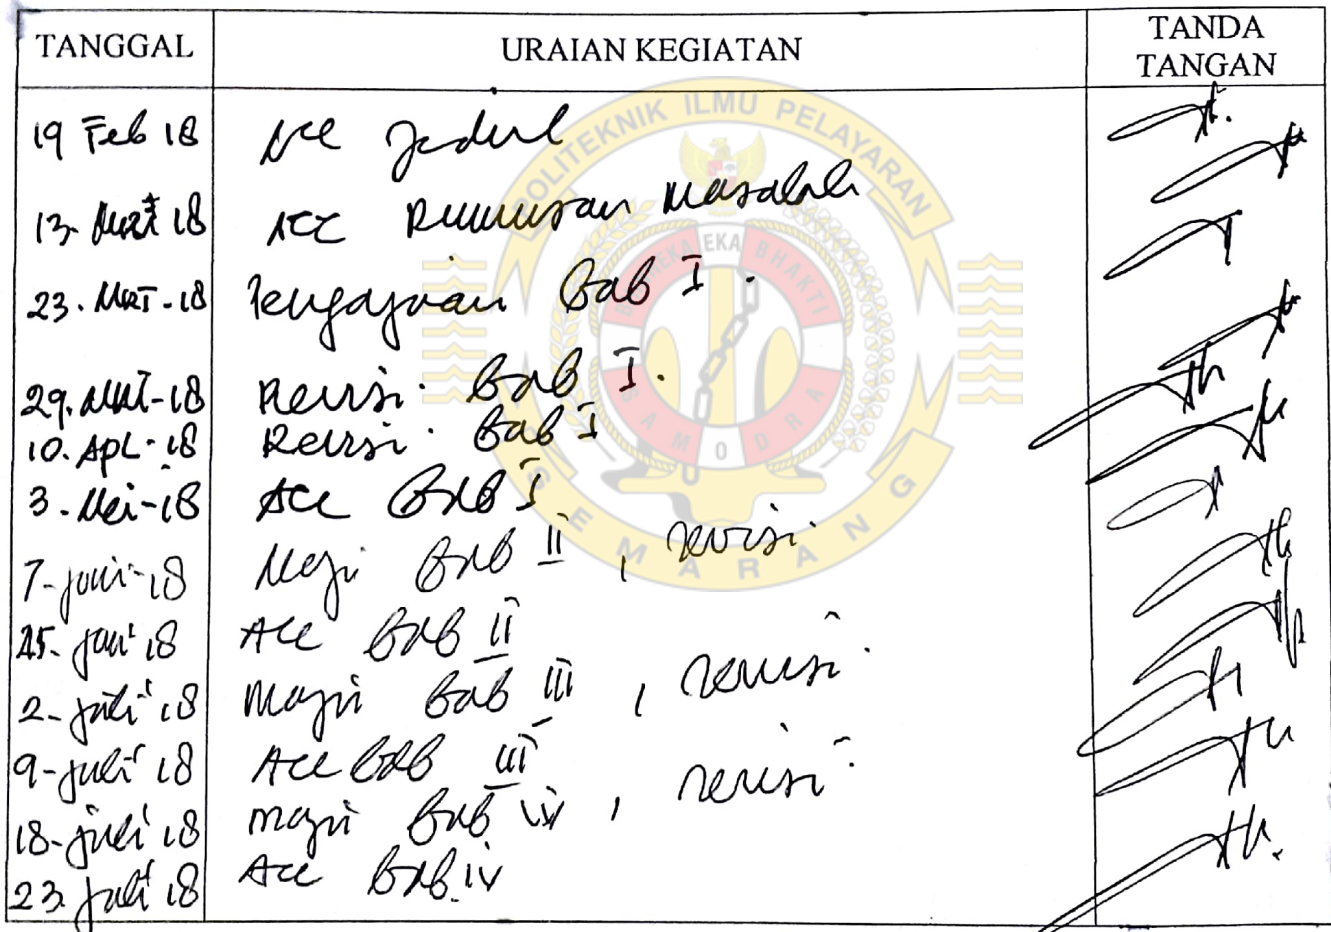 TANGGAL URAIAN KEGIATAN TANDA
TANGAN
19 Feb 18 Acc Judul
13. Mart 18 Acc Rumusan Masalah
23. Mart - 18 Pengajuan Bab I.
29. Mart - 18 Revisi Bab I.
10. Apl - 18 Revisi Bab I
3. Mei - 18 Acc Bab I
7 - Juni - 18 Maju Bab II, revisi
Juni 18 Acc Bab II
2 - Juli 18 Maju Bab III, revisi
9 - Juli 18 Acc Bab III
18 - Juli 18 maju Bab IV, revisi
23. Juli 18 Acc Bab IV
POLITEKNIK ILMU PELAYARAN
EKA BHAKTI
SAMODRA
SEMARANG